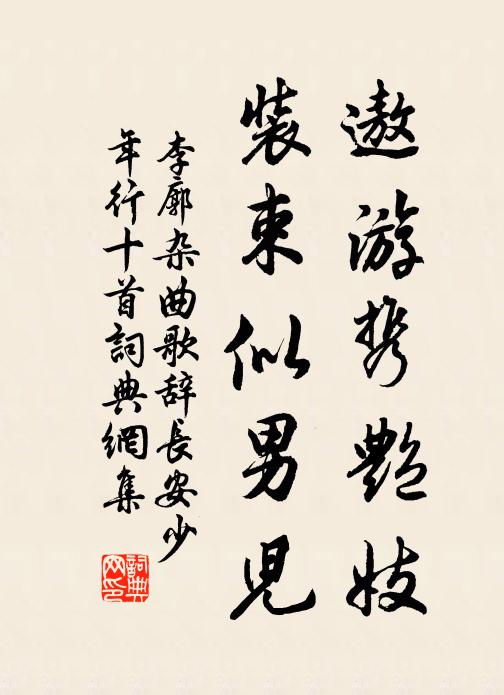 遨游携艶妓
裝束似男兒
李廓杂曲歌辞長安少
年行十首詞典網集
詞典
网印